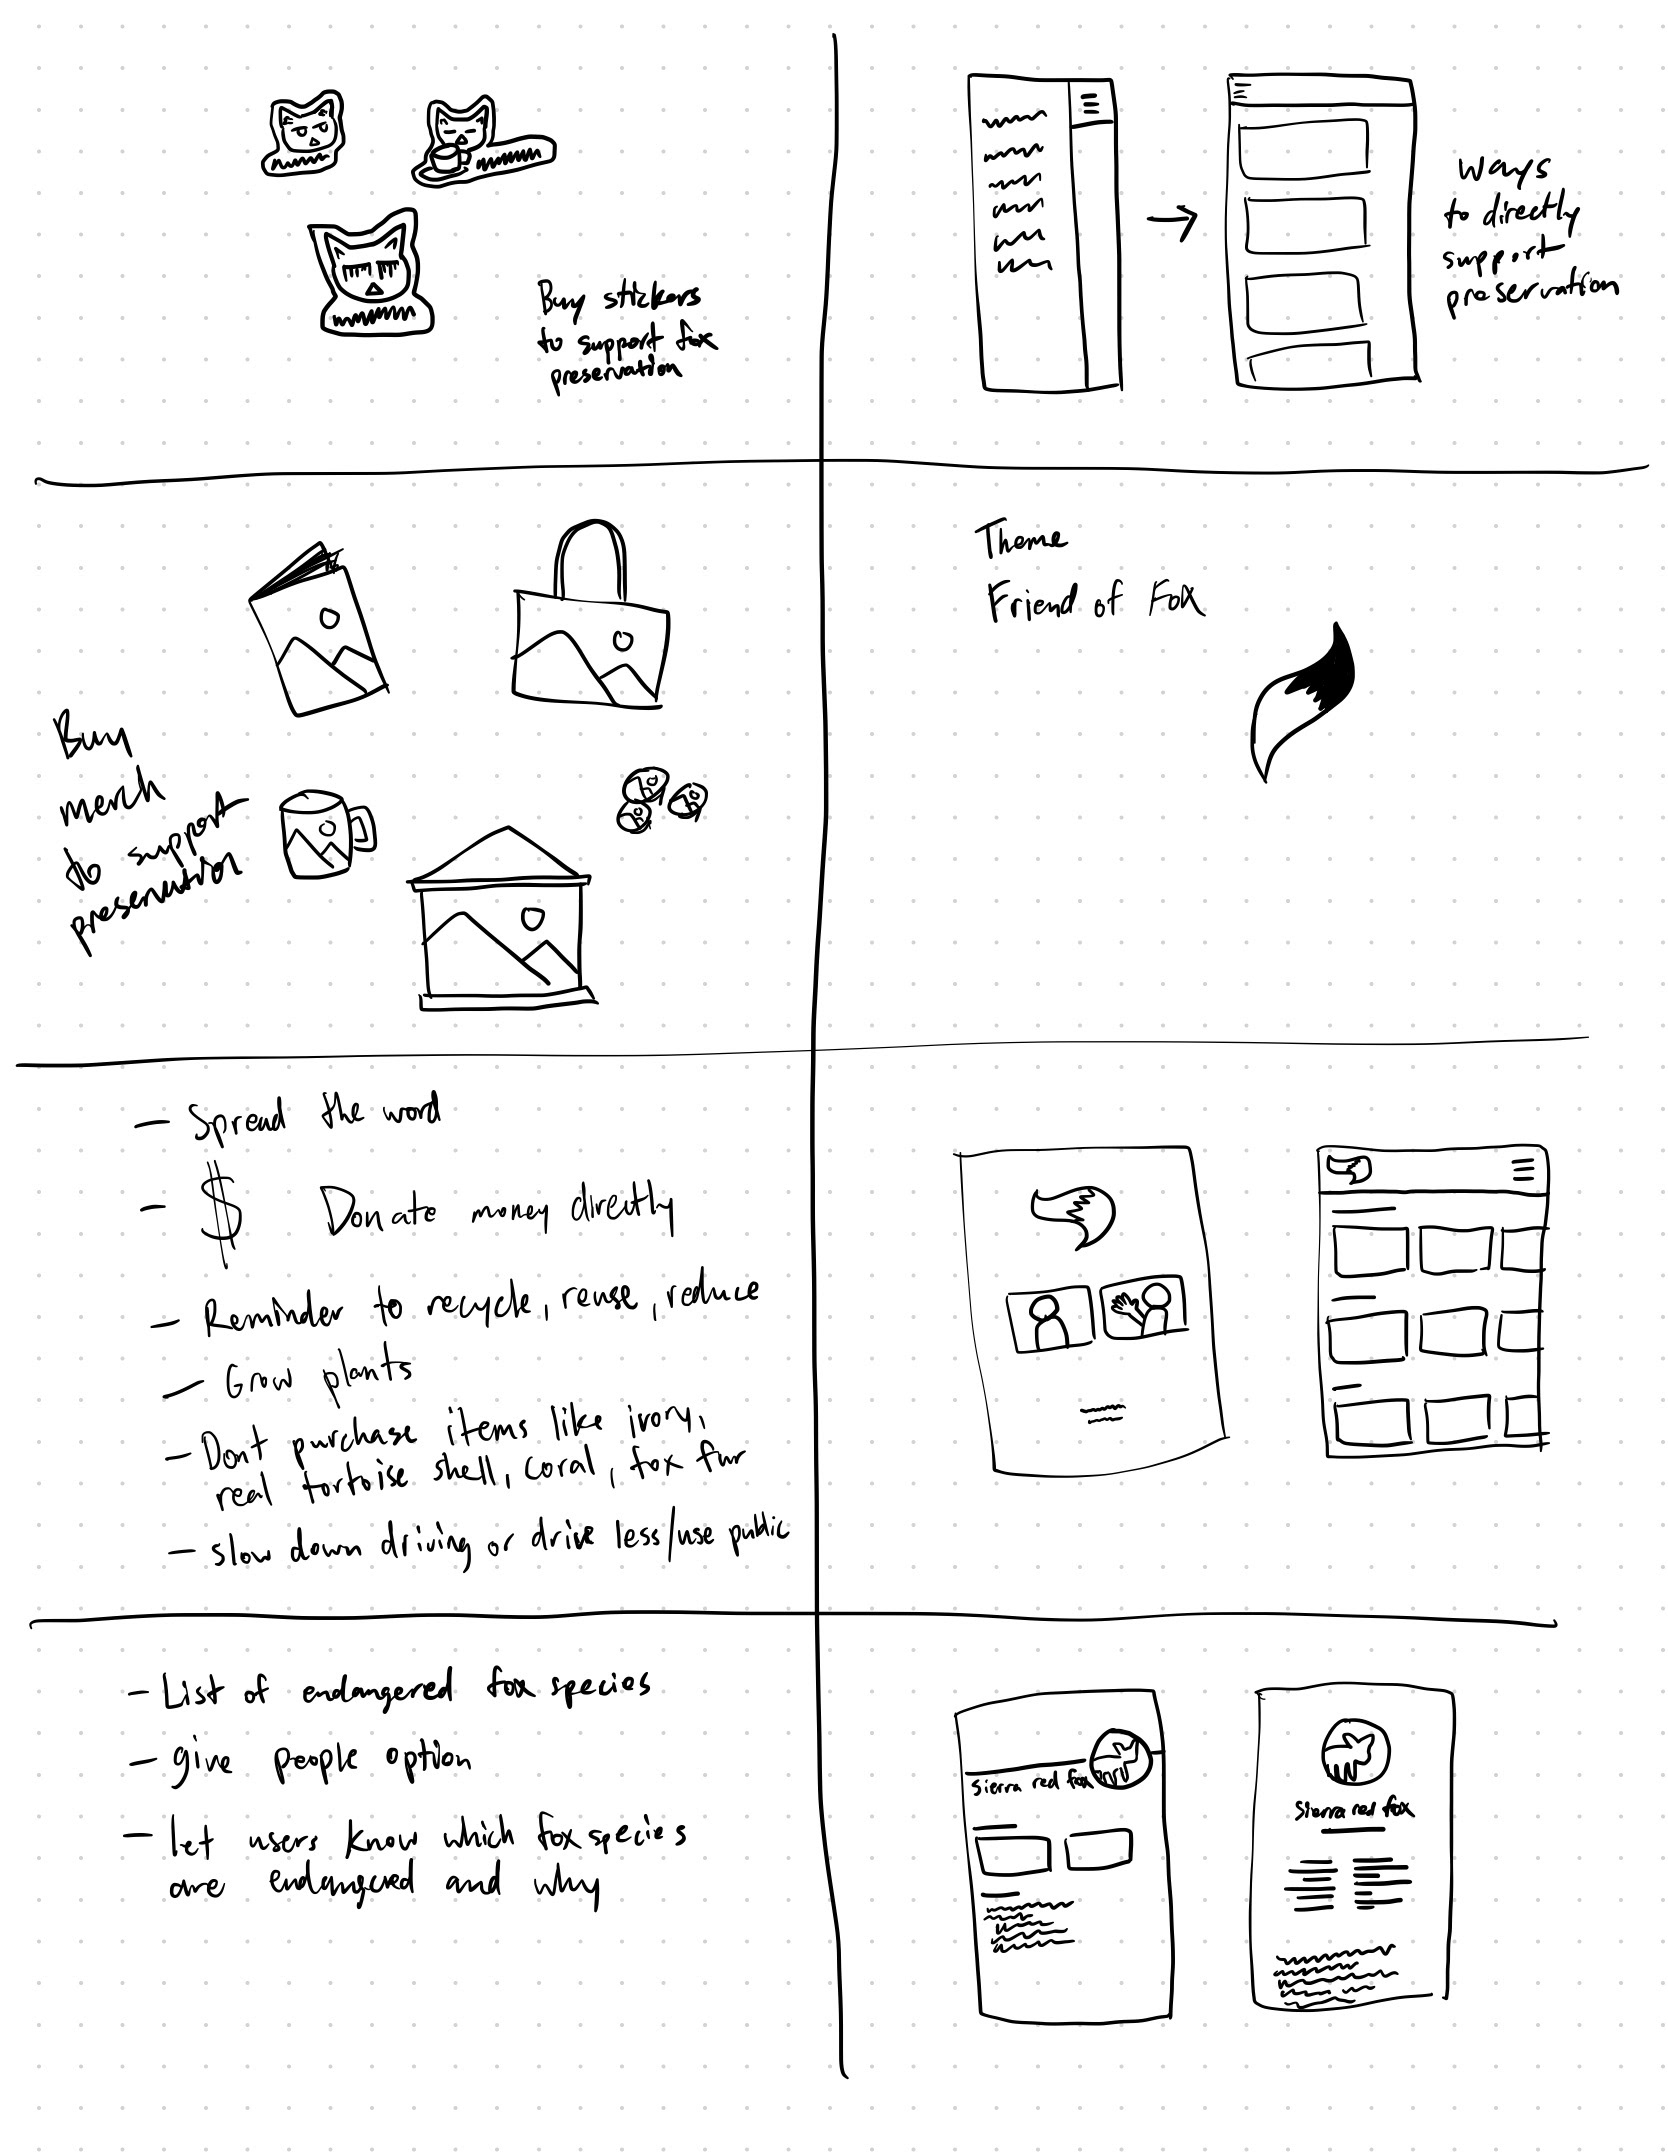 Buy stickers
to support fox
preservation
Ways
to directly
support
preservation
Buy
merch
to support
preservation
Theme
Friend of Fox
- Spread the word
- $ Donate money directly
- Reminder to recycle, reuse, reduce
- Grow plants
- Dont purchase items like ivory,
real tortoise shell, coral, fox fur
- slow down driving or drive less/use public
- List of endangered fox species
- give people option
- let users know which fox species
are endangered and why
Sierra red fox
Sierra red fox